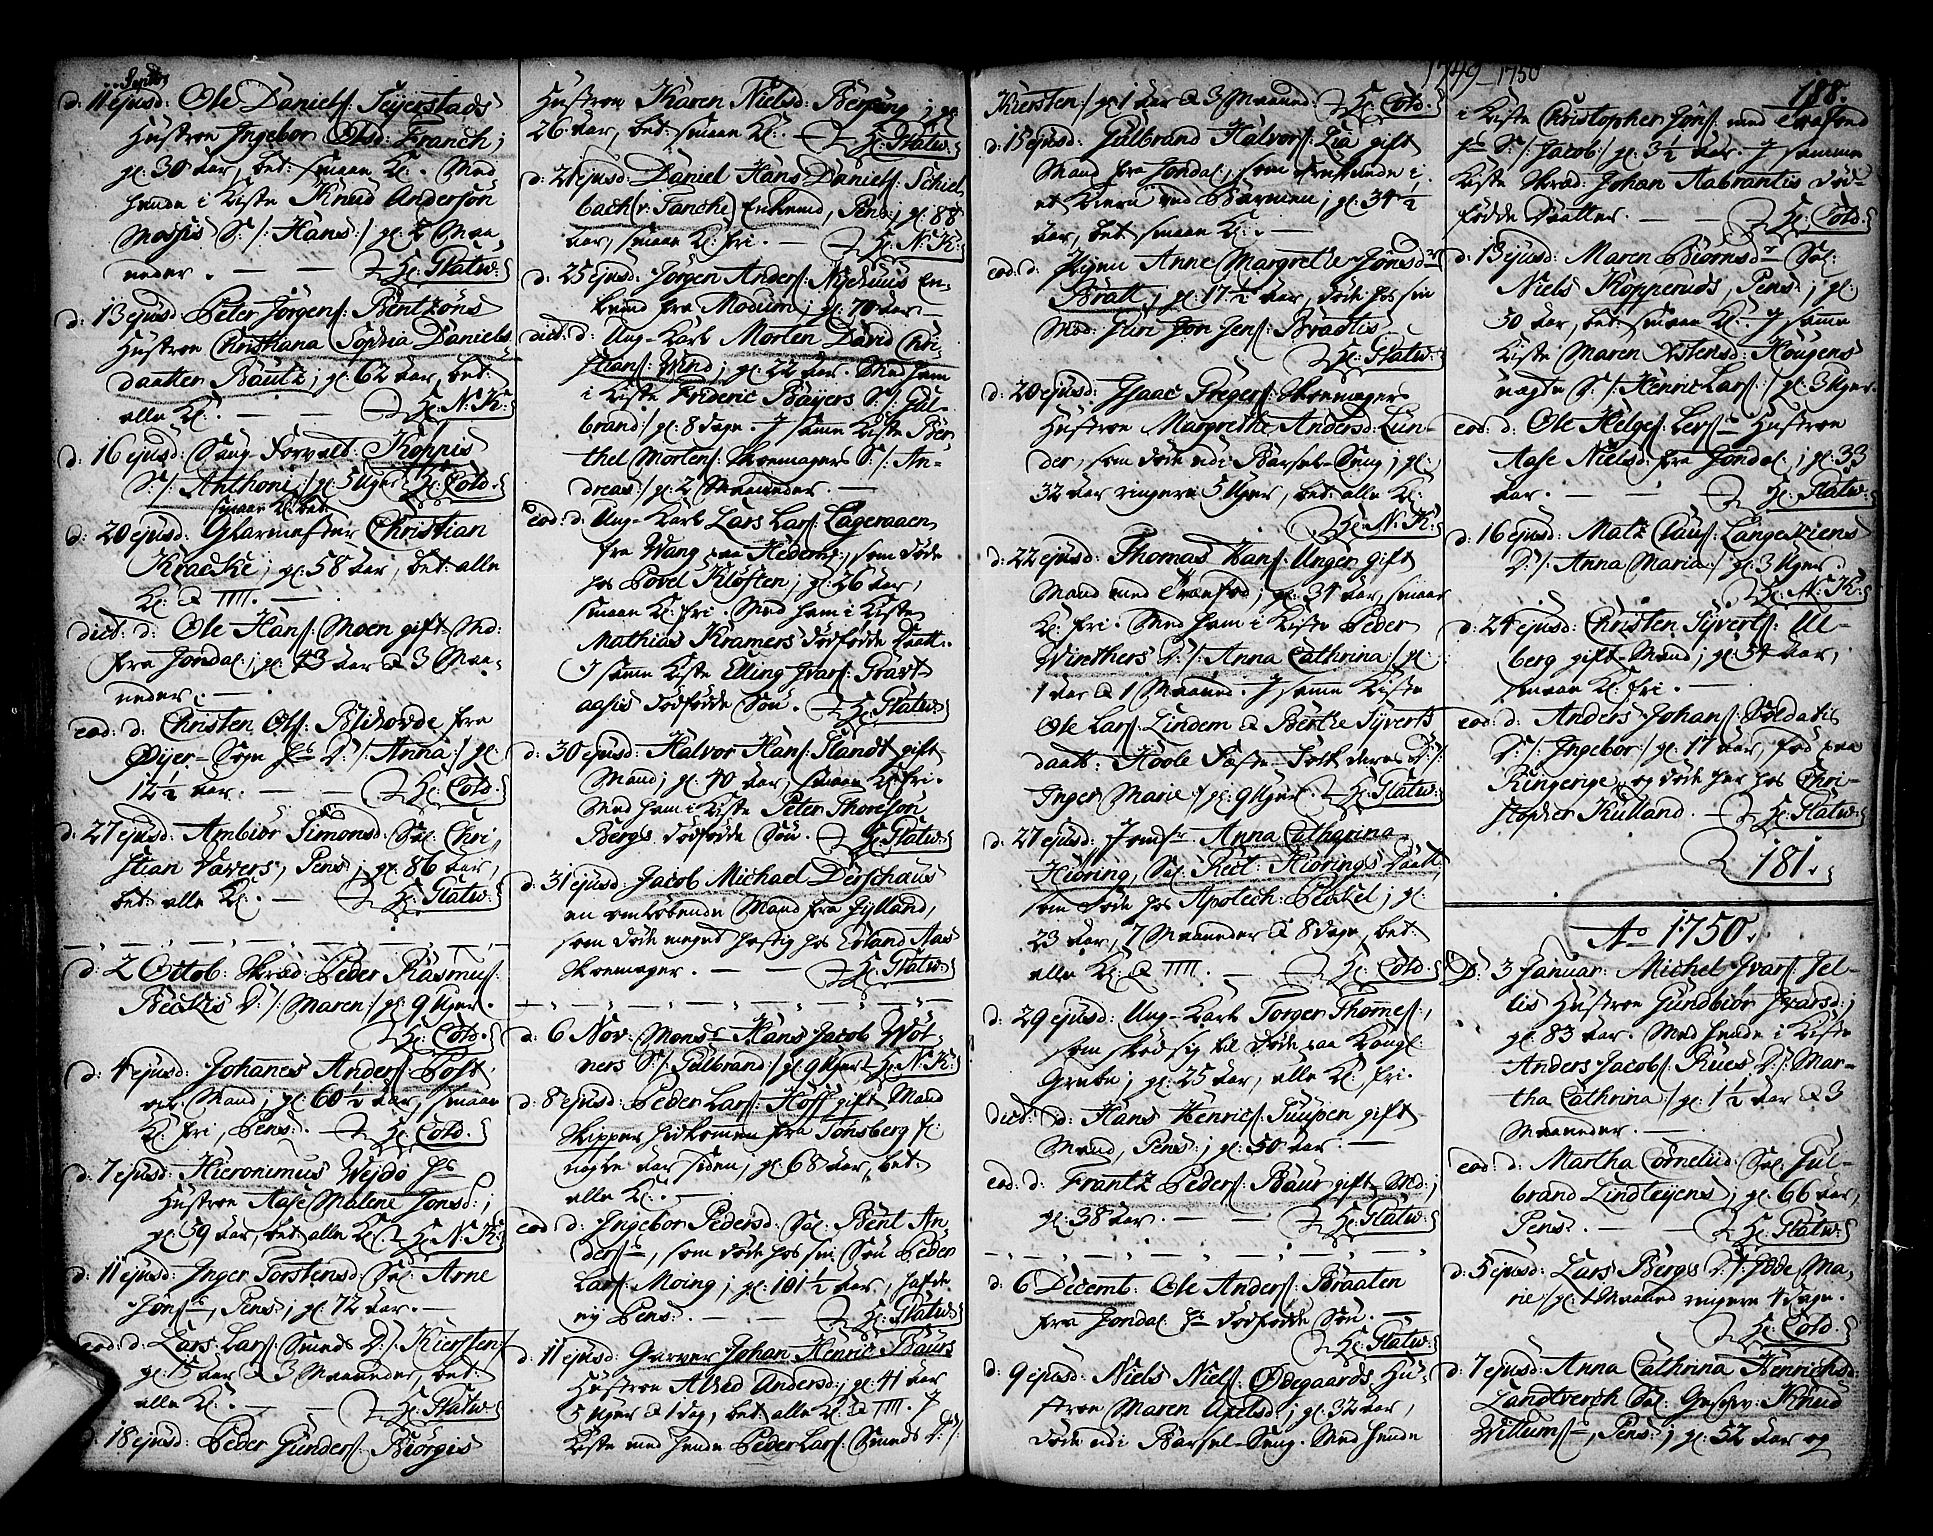 Septbr
d: 11 ejusd: Ole Daniels: Seyerstads
Hustroe Ingebor Olsd: Franck;
gl: 30 Aar, bet: smaae Kl:. Med
hende i Kiste Knud Anderson
Mossis S:/: Hans:/ gl: 2 Maa-
neder. — — H: Statw:
d: 13 ejusd: Peter Jörgens: Bentzöns
Hustroe Christiana Sophia Daniels-
daatter Bautz; gl: 62 Aar, bet:
alle Kl:. — — H: N: K:
d: 16 ejusd: Saug-Forvalt: Koppis
S:/: Anthoni:/ gl: 5 Uger. H: Cold.
smaae Kl: bet:
d: 20 ejusd: Glarmester Christian
Kracke; gl: 58 Aar, bet: alle
Kl: & IIII. —
dict: d: Ole Hans: Moen gift-Md:
fra Jondal; gl: 43 Aar & 3 Maa-
neder. —
eod: d: Christen Ols: Blikovde fra
Öyer-Sogn hs D:/: Anna:/ gl:
12½ Aar. — — H: Cold.
d: 27 ejusd: Ambiör Simonsd: Sal: Chri-
stian Favers, Pens:; gl: 86 Aar,
bet: alle Kl:. — H: Statw:
d: 2 Octob: Skræd: Peder Rasmus:
D:/: Maren:/ gl: 9 Uger.
H: Cold.
d: 4 ejusd: Johanes Anders: Post,
Mand, gl: 60½ Aar, smaae
Kl: fri, Pens:. — H: Cold.
d: 7 ejusd: Hieronimus Wejdo hs
Hustroe Aase Malene Jonsd:;
gl: 39 Aar, bet: alle Kl:. H: N: K:
d: 11 ejusd: Inger Torstensd: Sal: Arne
Jöns:, Pens:; gl: 72 Aar. —
eod: d: Lars Lars: Smeds D:/: Kiersten:/
gl: 15 Aar & 3 Maaneder, bet:
alle Kl:. — — H: Statw:
d: 18 ejusd: Peder Gunders: Biörgis
Hustroe Karen Nielsd: Berping; gl:
26 Aar, bet: smaae Kl:. — H: Statw:
d: 21 ejusd: Daniel Hans Daniels: Schiel-
bach (v: Tancke) Enkemd, Pens:; gl: 88
Aar, smaae Kl: fri. — H: N: K:
d: 25 ejusd: Jörgen Anders: Nyehuus En-
kemd fra Modum; gl: 70 Aar —
dict: d: Ung-Karl Morten David Chri-
stians: Wind; gl: 22 Aar. Med ham
i Kiste Frideric Bayers S:/: Gul-
brand:/ gl: 8 Dage. I samme Kiste Ber-
thel Mortens: Skoemagers S:/: An-
dreas:/ gl: 2 Maaneder. —
eod: d: Ung-Karl Lars Lars: Lageraaen
fra Wang paa Hedem:, som döde
hos Povel Klöften; gl: 26 Aar,
smaae Kl: fri. Med ham i Kiste
Mathias Kramers dödfödde Daatt:
I samme Kiste Elling Ivars:
dödfödde Sön. H: Statw:
d: 30 ejusd: Halvor Hans: Standt gift-
Mand; gl: 40 Aar, smaae Kl: fri.
Med ham i Kiste Peter Thoreson
Bergs dödfödde Sön. H: Statw:
d: 31 ejusd: Jacob Michael Derschaus
en omlöbende Mand fra Jylland,
som döde meget hastig hos Erland Aas
Skoemager. — H: Statw:
d: 6 Nov: Monsr Hans Jacob Wöl-
ners S:/: Gulbrand:/ gl: 9 Uger. H: N: K:
d: 8 ejusd: Peder Lars: Hoff gift Mand
Skipper hidkommen fra Tönsberg f:
nogle Aar siden, gl: 68 Aar, bet:
alle Kl:. —
eod: d: Ingebor Pedersd: Sal: Bent An-
ders:, som döde hos sin Sön Peder
Lars: Moing; gl: 101½ Aar, hafde
ey Pens:. — — H: Statw:
d: 11 ejusd: Garver Johan Henric Baurs
Hustroe Alhed Andersd:; gl: 41 Aar
5 Uger & 1 dag, bet: alle Kl: & IIII. I
Kiste med hende Peder Lars: Smeds D:/:
1749 1750
Kiersten:/ gl: 1 Aar & 3 Maaned: H: Cold.
d: 15 ejusd: Gulbrand Halvors: Lia gift
Mand fra Jondal, som druknede i
et Kiern ved Barmen; gl: 34½
Aar, bet: smaae Kl:. —
eod: d: Pigen Anne Margrethe Jonsdr
Bratt; gl: 17½ Aar, döde hos sin
Mod: Siri Jon Jens: Bratts.
H: Statw:
d: 20 ejusd: Isaac Gregers: Skoemagers
Hustroe Margrethe Andersd: Lun-
der, som döde udi Barsel-Seng; gl:
32 Aar ringere 5 Uger, bet: alle Kl:
H: N: K:
d: 22 ejusd: Thomas Hans: Unger gift
Mand med Træefod; gl: 31 Aar, smaae
Kl: fri. Med ham i Kiste Peder
Winthers D:/: Anna Cathrina:/ gl:
1 Aar & 1 Maaned. I samme Kiste
Ole Lars: Lindem & Berthe Syverts
daatt: Hoole Fæste-Folk deres D:/:
Inger Marie:/ gl: 9 Uger. H: Statw:
d: 27 ejusd: Jomfr Anna Catharina
Hiöring, Sal: Rect: Hiörings Daatt:,
som döde hos Apotech: Peckel; gl:
23 Aar, 7 Maaneder & 8 dage, bet:
alle Kl: & IIII. — H: Cold.
d: 29 ejusd: Ung-Karl Torger Thomes:,
som skod sig til döde paa Kongl:
Grube; gl: 25 Aar, alle Kl: fri.
dict: d: Hans Henrics: Tuupen gift
Mand, Pens:; gl: 50 Aar. —
eod: d: Frantz Peders: Baur gift-Md;
gl: 38 Aar. — — H: Statw:
d: 6 Decemb: Ole Anders: Braaten
fra Jondal hs dödfödde Sön. —
H: Statw:
d: 9 ejusd: Niels Niels: Ödegaards Hu-
stroe Maren Axelsd:; gl: 32 Aar,
döde udi Barsel-Seng. Med hende
188.
i Kiste Christopher Jöns: med Træefoed
hs S:/: Jacob:/ gl: 3½ Aar. I samme
Kiste Skræd: Johan Aabrantis död-
födde Daatter. — H: Cold.
d: 13 ejusd: Maren Biörnsdr Sal:
Niels Kopperuds, Pens:; gl:
50 Aar, bet: smaae Kl:. I samme
Kiste Maren Ostensd: Hougens
uægte S:/: Henric Lars:/ gl: 3 Uger.
eod: d: Ole Helges: Hustroe
Aase Nielsd: fra Jondal; gl: 33
Aar. — — H: Statw:
d: 16 ejusd: Matz Claus: Langekiens
D:/: Anna Maria:/ gl: 3 Uger.
H: N: K:
d: 24 ejusd: Christen Syverts: Ul-
berg gift-Mand; gl: 54 Aar,
smaae Kl: fri. —
eod: d: Anders Johans: Soldatis
D:/: Ingebor:/ gl: 17 Aar, föd paa
Ringerige, og döde her hos Chri-
stopher Kulland. H: Statw:
181.
Ao 1750.
D: 3 Januar: Michel Ivars: Jel-
tis Hustroe Gundbiör Ivarsd:;
gl: 83 Aar. Med hende i Kiste
Anders Jacobs: Rues D:/: Mar-
tha Cathrina:/ gl: 1½ Aar & 3
Maaneder. —
eod: d: Martha Cornelid: Sal: Gul-
brand Lindteyens; gl: 66 Aar,
Pens:. — — H: Statw:
d: 5 ejusd: Lars Bergs D:/: Idde Ma-
rie:/ gl: 1 Maaned ringere 4 dage.
H: Cold.
d: 7 ejusd: Anna Cathrina Henrichsd:
Landtverch Sal: Gieschv: Knud
Willums:, Pens:; gl: 52 Aar og